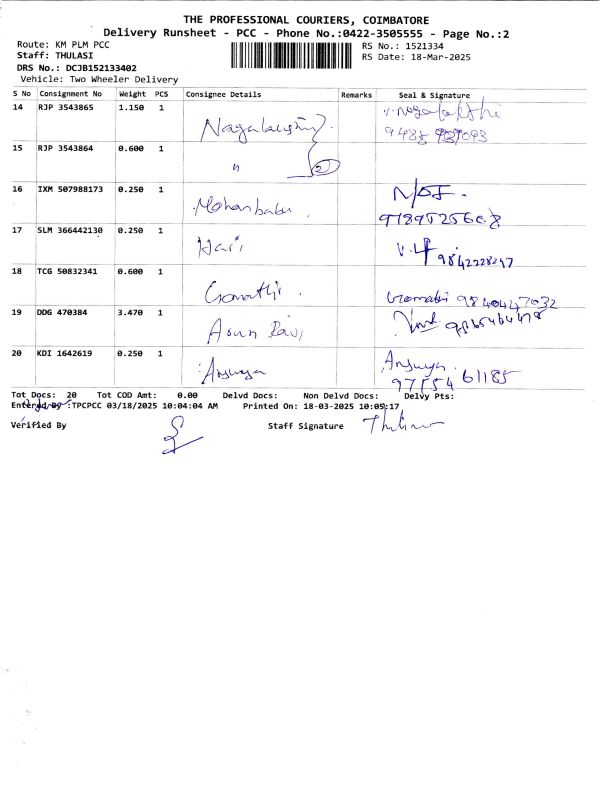 THE PROFESSIONAL COURIERS, COIMBATORE
Delivery Runsheet - PCC - Phone No.:0422-3505555 - Page No.:2
Route: KM PLM PCC RS No.: 1521334
Staff: THULASI RS Date: 18-Mar-2025
DRS No.: DCJB152133402
Vehicle: Two Wheeler Delivery
S No Consignment No Weight PCS Consignee Details Remarks Seal & Signature
14 RJP 3543865 1.150 1
15 RJP 3543864 0.600 1 " 2
16 IXM 507988173 0.250 1 Mohanbabu
17 SLM 366442130 0.250 1 Hari 9842228297
18 TCG 50832341 0.600 1 Gomathi. Gomathi 9840447032
19 DDG 470384 3.470 1 Arun
20 KDI 1642619 0.250 1 Ansuya Ansuya.
97554 61185
Tot Docs: 20 Tot COD Amt: 0.00 Delvd Docs: Non Delvd Docs: Delvy Pts:
Entered By :TPCPCC 03/18/2025 10:04:04 AM Printed On: 18-03-2025 10:05:17
Verified By Staff Signature